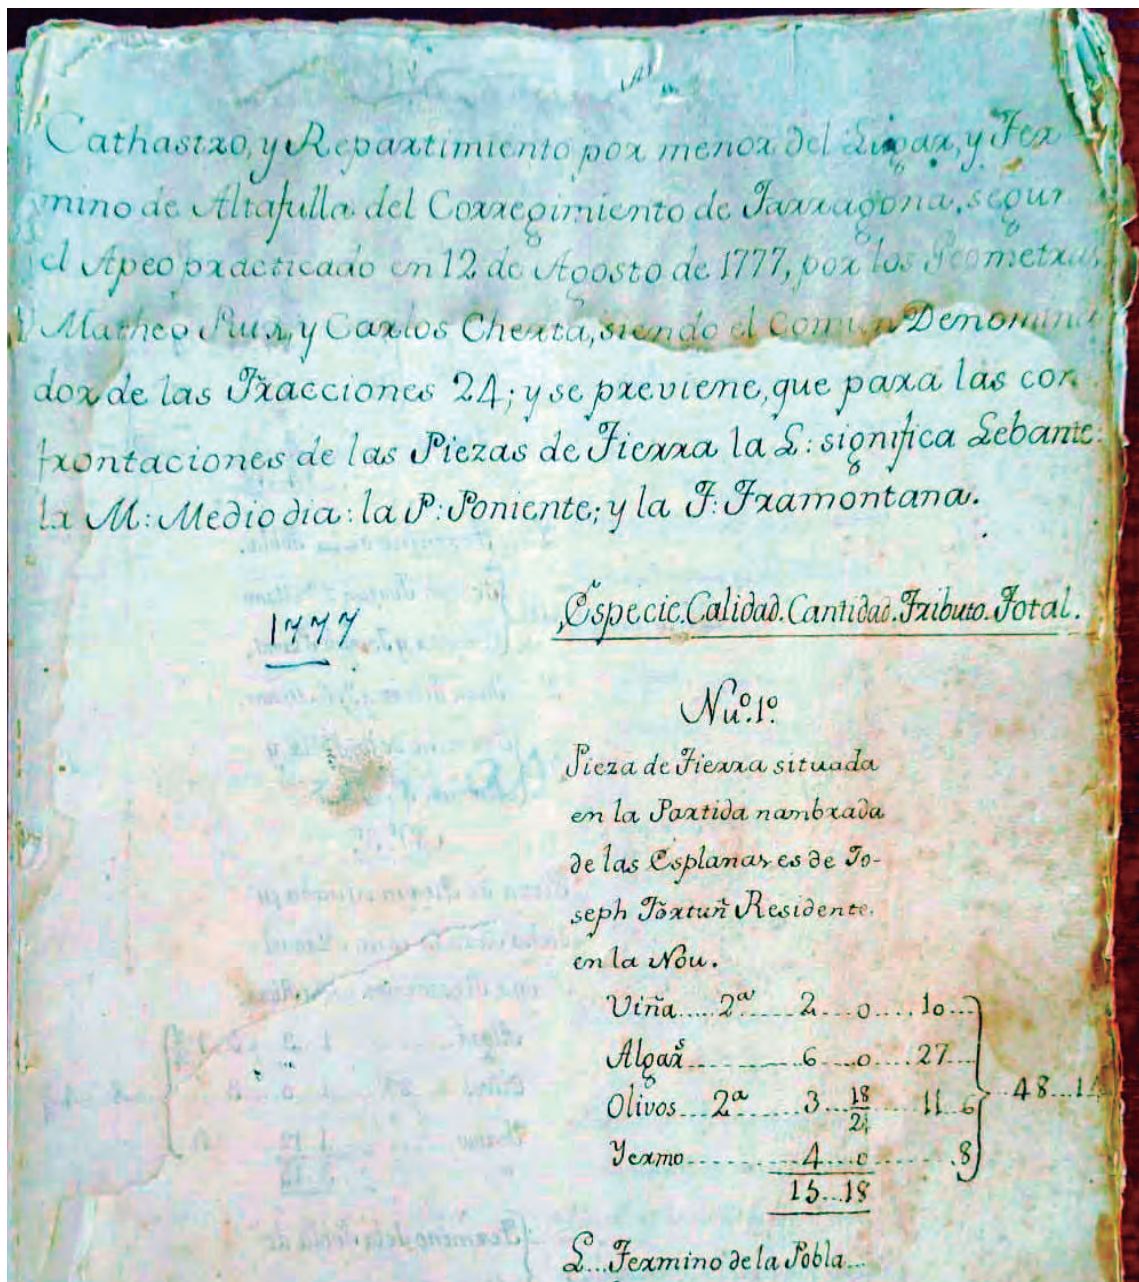 Cathastro, y Repartimiento por menor del Lugar, y Ter
mino de Altafulla del Corregimiento de Tarragona, segun
el Apeo practicado en 12 de Agosto de 1777, por los Geometras
Matheo Ruix, y Carlos Cherta, siendo el Comun Denomina
dor de las Fracciones 24; y se previene, que para las con
frontaciones de las Piezas de Tierra la L: significa Lebante:
la M: Medio dia: la P: Poniente; y la T: Tramontana.
Especie. Calidad. Cantidad. Tributo. Total.
1777
Nu.º 1.º
Pieza de Tierra situada
en la Partida nambrada
de las Esplanas, es de Jo-
seph Fortuñ Residente
en la Nou.
Viña.....2ª.......2....0.....10...
Algarˢ...........6....0.....27...
Olivos...2ª......3...18/24....11..6
Yermo............4....0........8
48...14
15...18
L...Termino de la Pobla...